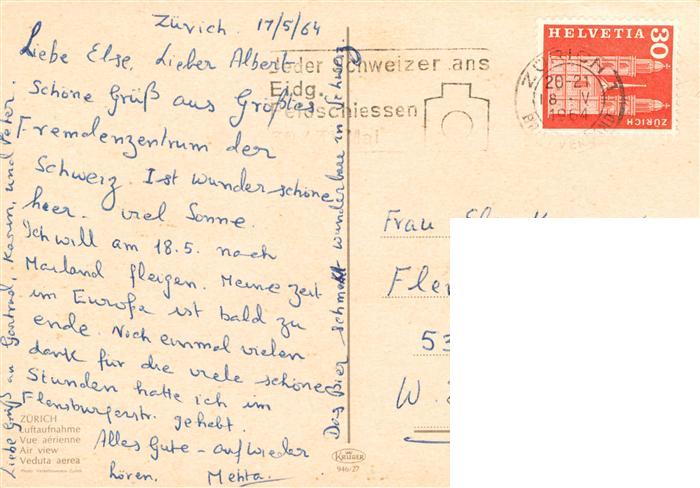 Zürich. 17/5/64
Liebe Else, Lieber Albert
Schöne Grüß aus Größtes
Fremdenzentrum der
Schweiz. Ist wunderschöne
heer. viel Sonne.
Ich will am 18.5. nach
Mailand fleigen. Meine zeit
im Europa ist bald zu
ende. Noch einmal vielen
dank für die viele schöne
Stunden hatte ich im
Flensburgerstr. gehabt.
Alles Gute - auf wieder
hören. Mehta.
Das Bier schmekt wunderbare in Schweiz.
Liebe Grüß an Gertrud, Karin, und Peter.
ZÜRICH
Luftaufnahme
Vue aérienne
Air view
Veduta aerea
Photo Verkehrsverein Zürich
KRÜGER
946/27
Jeder Schweizer ans
Eidg.
Feldschiessen
Mai
ZÜRICH 1
20-21
18. V
1964
HELVETIA
30
ZÜRICH
Frau
Flen
53
W.